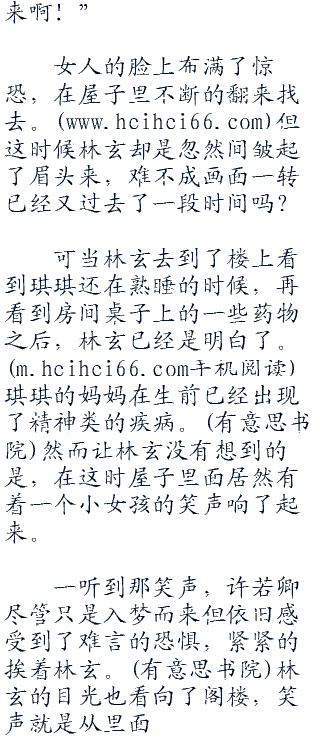 来啊！”
女人的脸上布满了惊
恐，在屋子里不断的翻来找
去。(www.hcihci66.com)但
这时候林玄却是忽然间皱起
了眉头来，难不成画面一转
已经又过去了一段时间吗？
可当林玄去到了楼上看
到琪琪还在熟睡的时候，再
看到房间桌子上的一些药物
之后，林玄已经是明白了。
(m.hcihci66.com手机阅读)
琪琪的妈妈在生前已经出现
了精神类的疾病。(有意思书
院)然而让林玄没有想到的
是，在这时屋子里面居然有
着一个小女孩的笑声响了起
来。
一听到那笑声，许若卿
尽管只是入梦而来但依旧感
受到了难言的恐惧，紧紧的
挨着林玄。(有意思书院)林
玄的目光也看向了阁楼，笑
声就是从里面